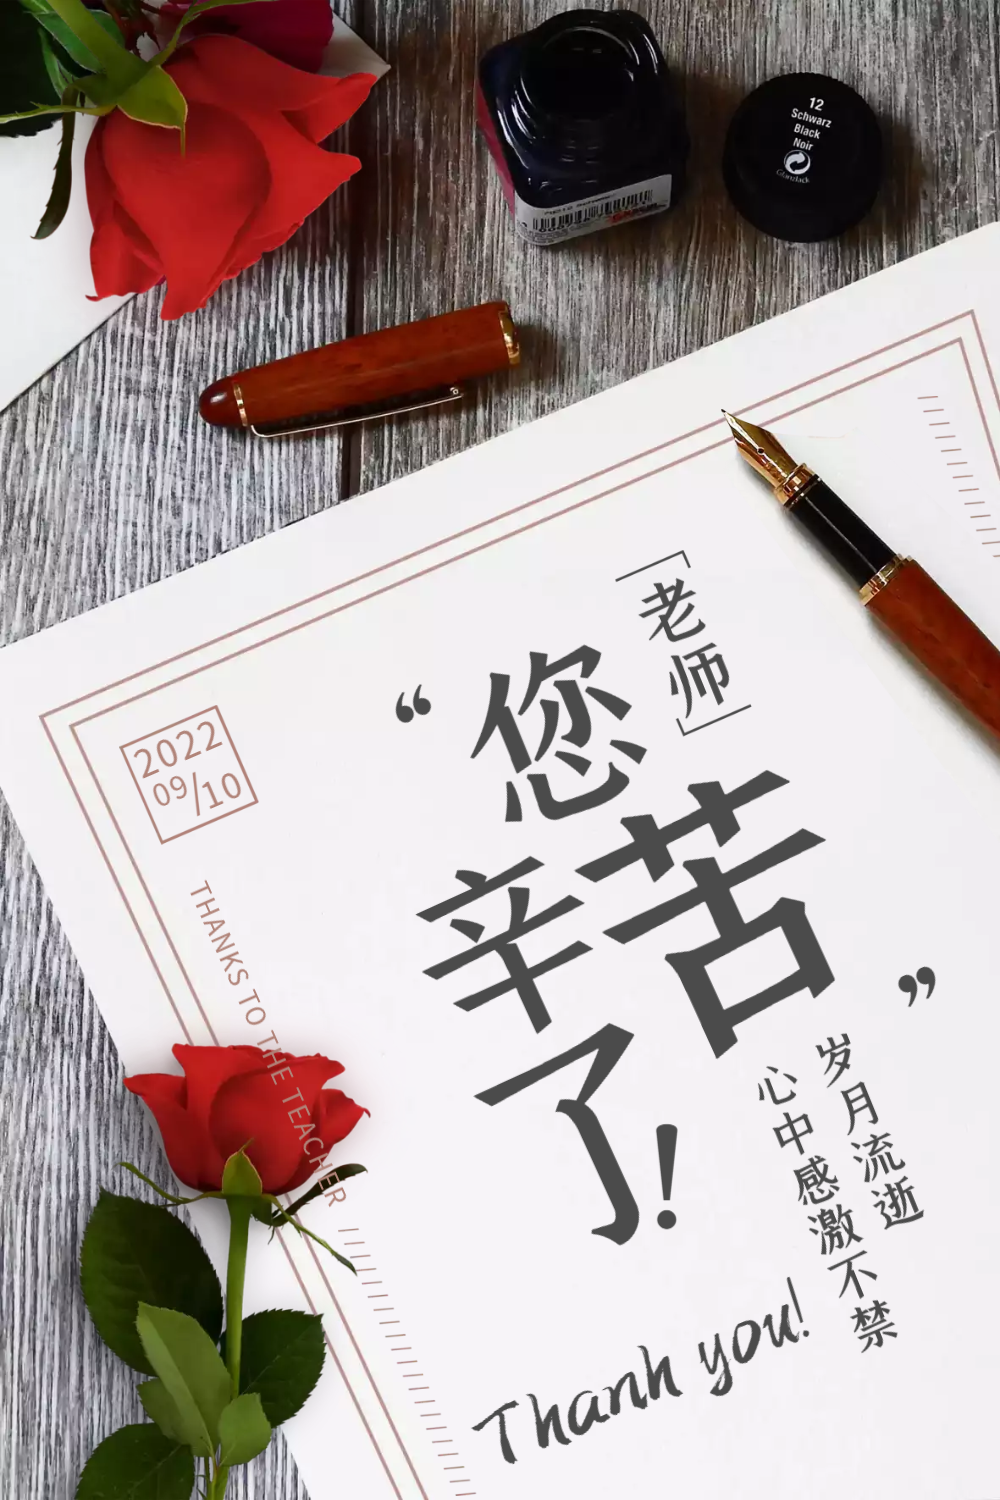 12
Schwarz
Black
Noir
「老师」
“您
辛苦
了!”
2022
09/10
THANKS TO THE TEACHER
岁月流逝
心中感激不禁
Thank you!